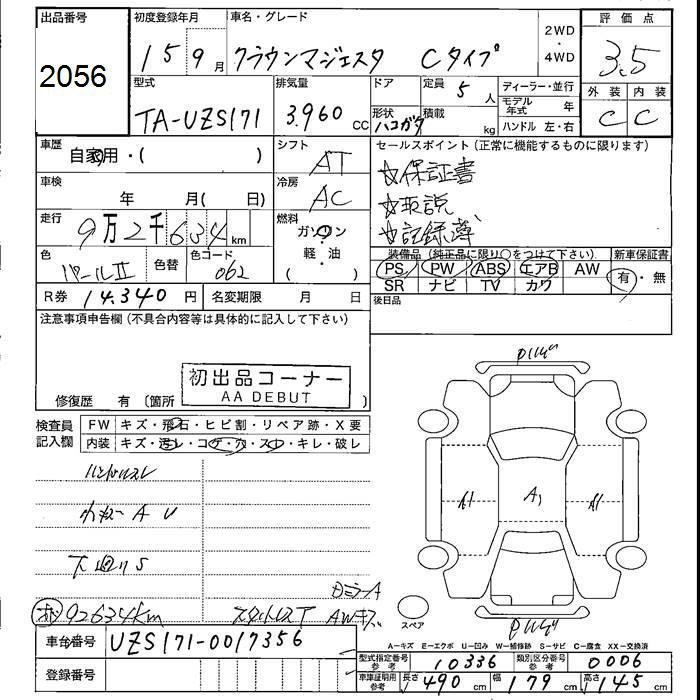 出品番号
2056
初度登録年月
15 9月
車名・グレード
クラウンマジェスタ Cタイプ
2WD
・
4WD
評価点
3.5
外装 内装
C C
型式
TA-UZS171
排気量
3.960 cc
ドア
形状
ハコガタ
定員
5 人
積載
kg
ディーラー・並行
モデル年式 年
ハンドル 左・右
車歴
自家用・( )
シフト
AT
セールスポイント(正常に機能するものに限ります)
☆保証書
☆取説
☆記録簿
車検
年 月( 日)
冷房
AC
走行
9万2千634km
燃料
ガソリン
軽・油
( )
色
パールII
色替
色コード
062
装備品(純正品に限り○をつけて下さい)
PS PW ABS エアB AW
SR ナビ TV カワ
新車保証書
有・無
R券 14.340円
名変期限 月 日
後日品
注意事項申告欄(不具合内容等は具体的に記入して下さい)
初出品コーナー
AA DEBUT
修復歴 有〔箇所 〕
検査員記入欄
FW キズ・飛石・ヒビ割・リペア跡・X要
内装 キズ・汚レ・コゲ・穴・スレ・キレ・破レ
ハンドルスレ
A U
下廻りS
ミラーA
92634km
AWキズ
A1 A1 A1
スペア
A=キズ E=エクボ U=凹み W=補修跡 S=サビ C=腐食 XX=交換済
車台番号 UZS171-0017356
登録番号
型式指定番号 参考 10336
類別区分番号 参考 0006
車庫証明用 参考 長さ 490cm 幅 179cm 高さ 145cm